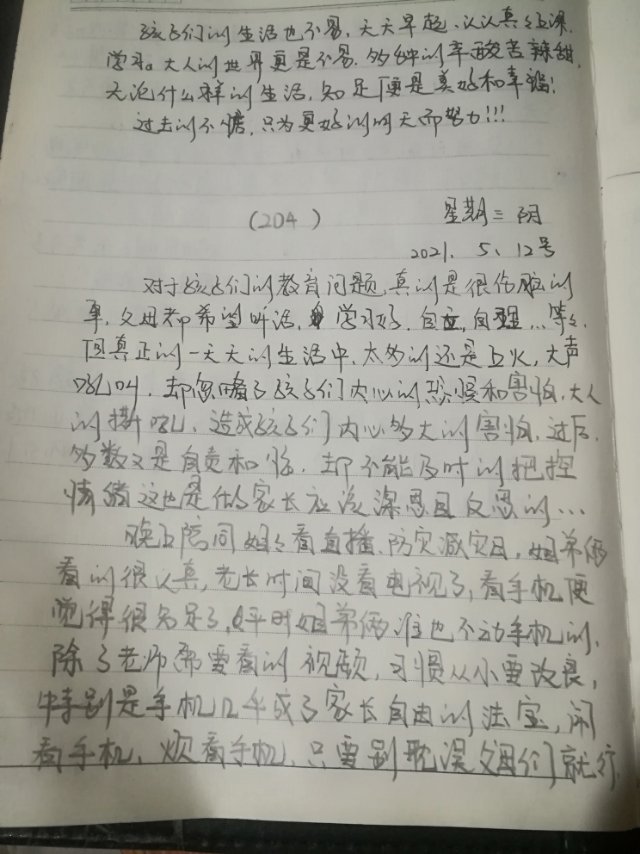 孩子们的生活也不易，天天早起、认认真真上课，
学习。大人的世界更是不易，多种的辛酸苦辣甜，
无论什么样的生活，知足便是美好和幸福！
过去的不惜，只为更好的明天而努力!!!
(204) 星期三 阴
2021. 5. 12号
对于孩子们的教育问题，真的是很伤脑的
事，父母都希望听话，学习好，自立，自强…等等，
但真正的一天天的生活中，太多的还是上火，大声
吼叫，却忽略了孩子们内心的恐惧和害怕，大人
的撕吼，造成孩子们内心多大的害怕，过后，
多数又是自责和，却不能及时的把控
情绪这也是做家长应该深思且反思的…
晚上陪同姐姐看直播，防灾减灾日，姐弟俩
看的很认真，老长时间没看电视了，看手机便
觉得很知足了，平时姐弟俩谁也不动手机的，
除了老师需要看的视频，习惯从小要改良，
特别是手机几乎成了家长自由的法宝，闲
看手机，烦看手机，只要别耽误父母们就行，